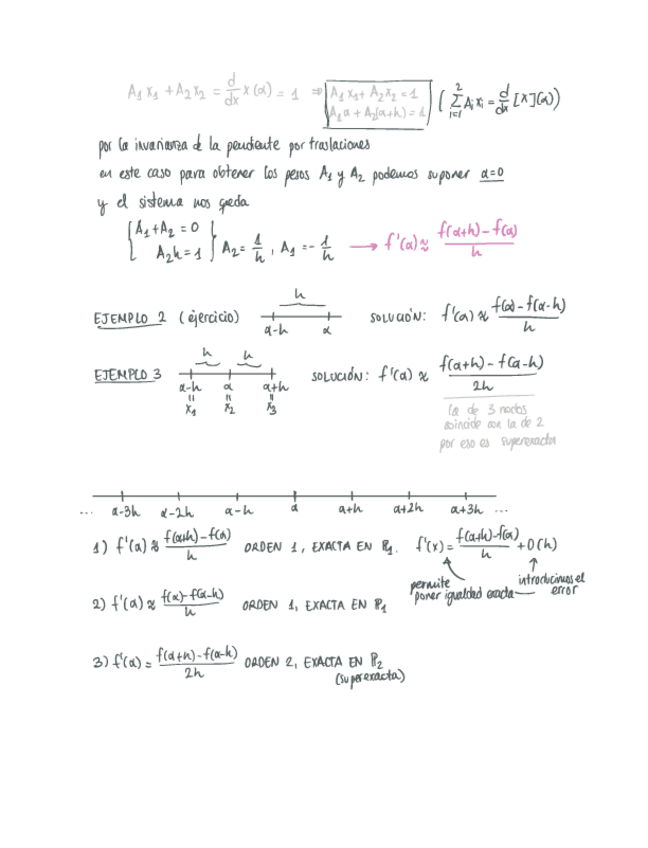 A₁x₁ + A₂x₂ = d/dx x(α) = 1 ⇒ A₁x₁ + A₂x₂ = 1 ( Σ_{i=1}^{2} Aᵢxᵢ = d/dx [x](α) )
A₁α + A₂(α+h) = 1
por la invarianza de la pendiente por traslaciones
en este caso para obtener los pesos A₁ y A₂ podemos suponer α=0
y el sistema nos queda
{ A₁+A₂ = 0
A₂h = 1 } A₂ = 1/h , A₁ = -1/h → f'(α) ≈ (f(α+h) - f(α))/h
h
EJEMPLO 2 (ejercicio) α-h α SOLUCIÓN: f'(α) ≈ (f(α) - f(α-h))/h
h h
EJEMPLO 3 α-h α α+h SOLUCIÓN: f'(α) ≈ (f(α+h) - f(α-h))/2h
" " "
x₁ x₂ x₃
la de 3 nodos
coincide con la de 2
por eso es superexacta
... α-3h α-2h α-h α α+h α+2h α+3h ...
1) f'(α) ≈ (f(α+h) - f(α))/h ORDEN 1, EXACTA EN P₁. f'(x) = (f(α+h) - f(α))/h + O(h)
permite
poner igualdad exacta
introducimos el
error
2) f'(α) ≈ (f(α) - f(α-h))/h ORDEN 1, EXACTA EN P₁
3) f'(α) = (f(α+h) - f(α-h))/2h ORDEN 2, EXACTA EN P₂
(superexacta)